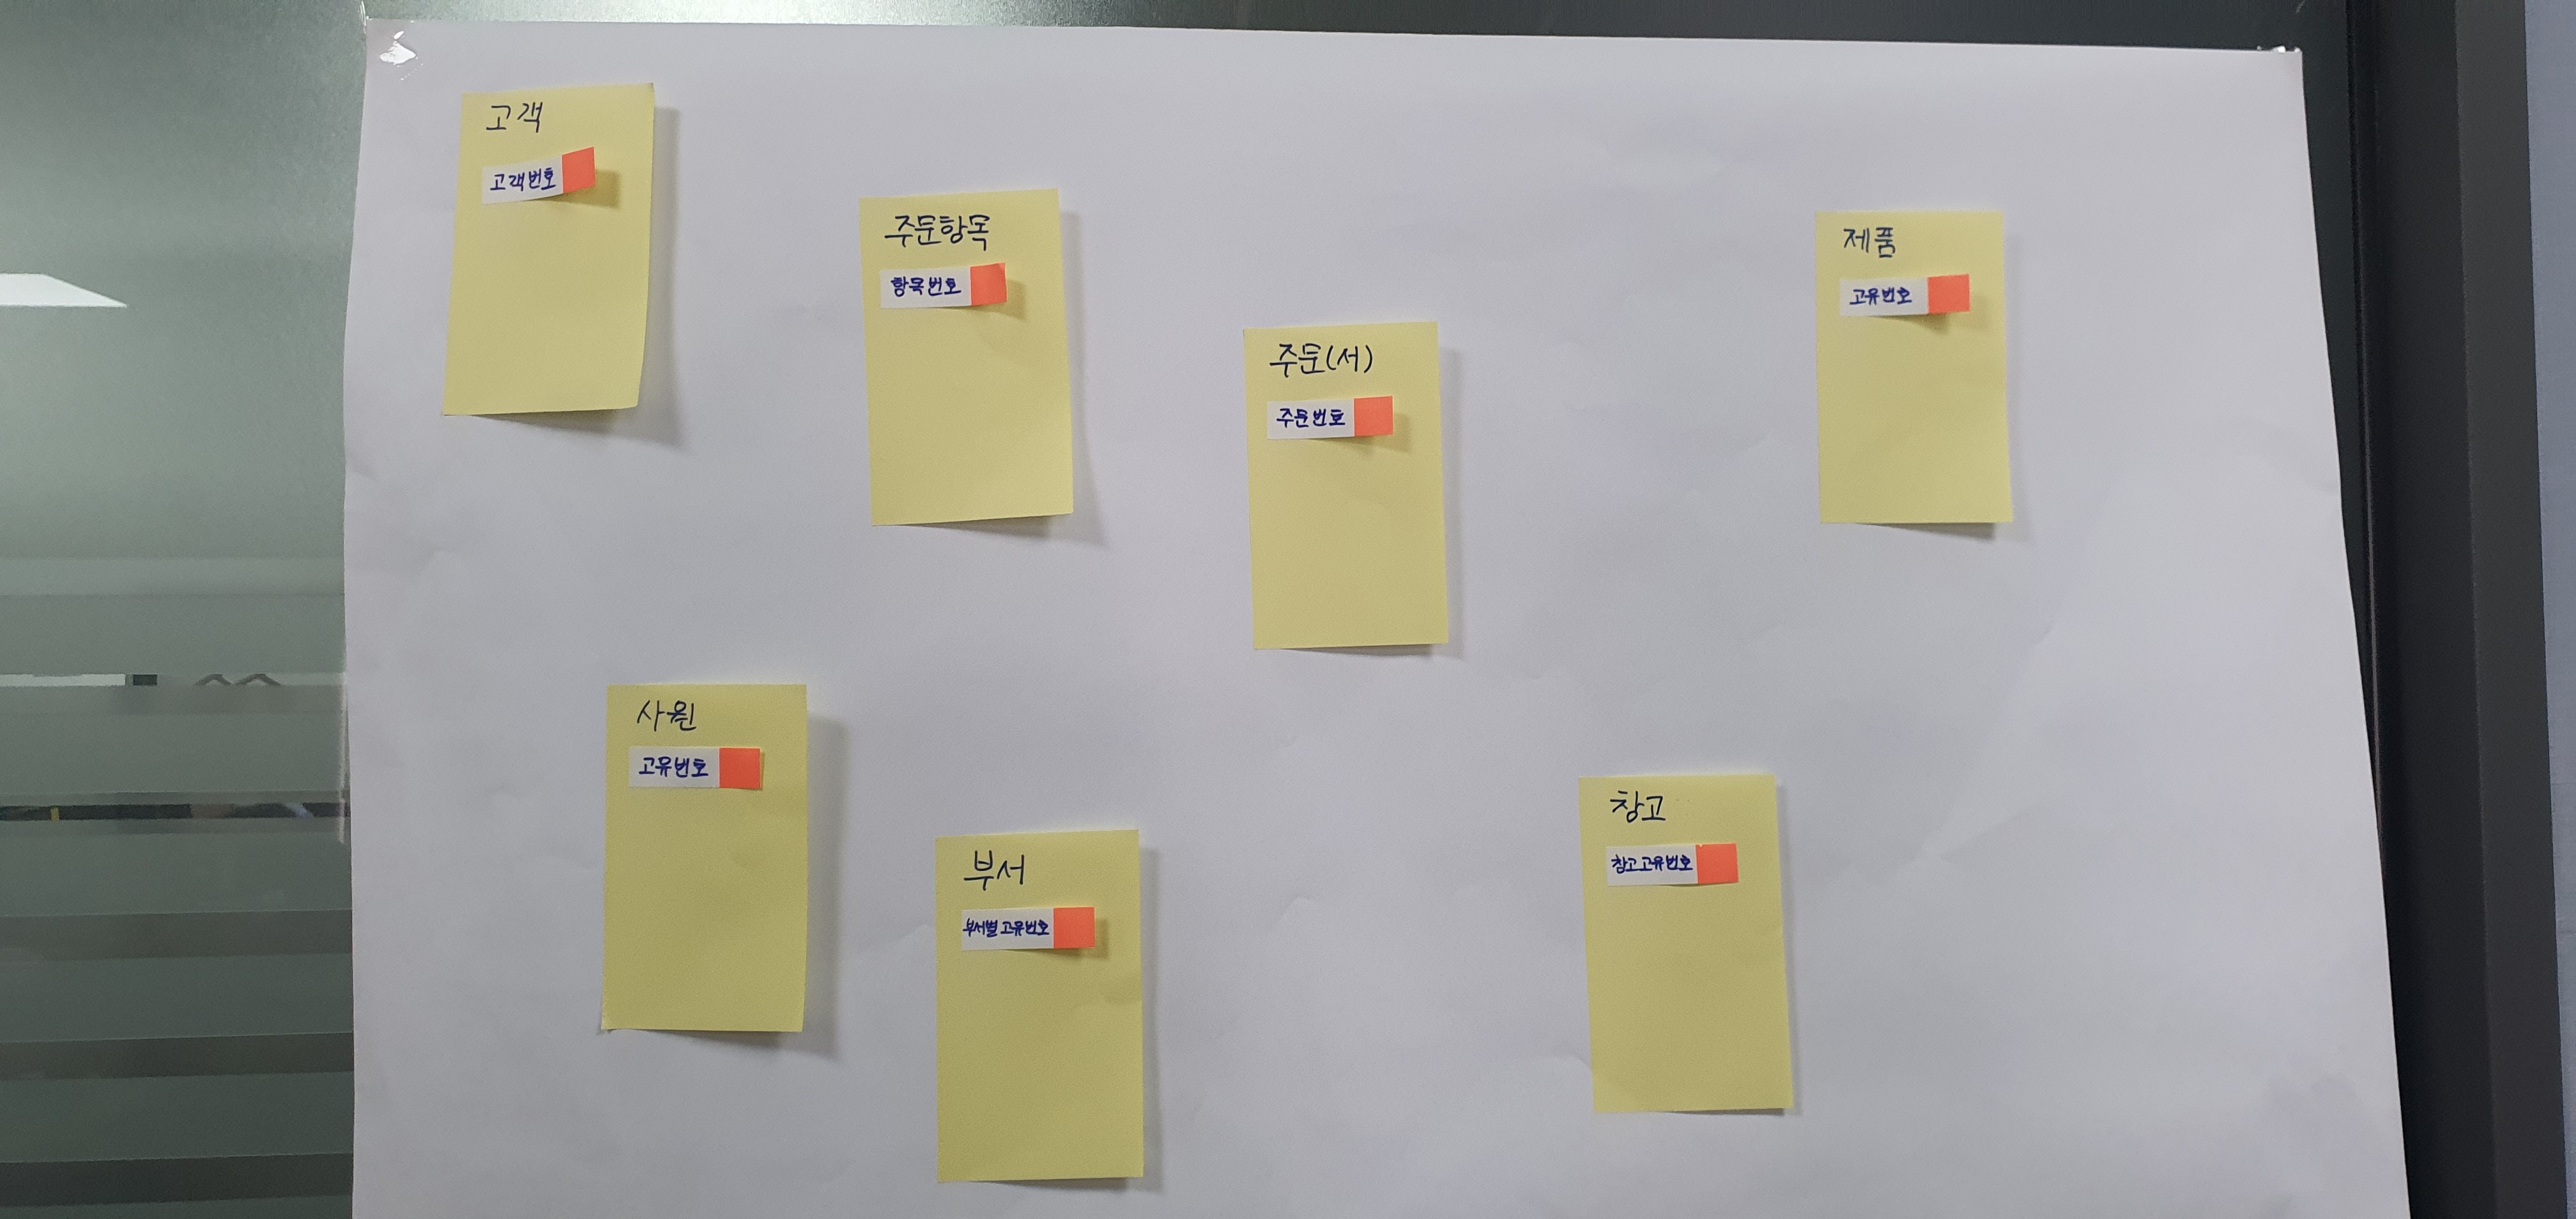 고객
고객번호
주문항목
항목번호
주문(서)
주문번호
제품
고유번호
사원
고유번호
부서
부서별 고유번호
창고
창고고유번호